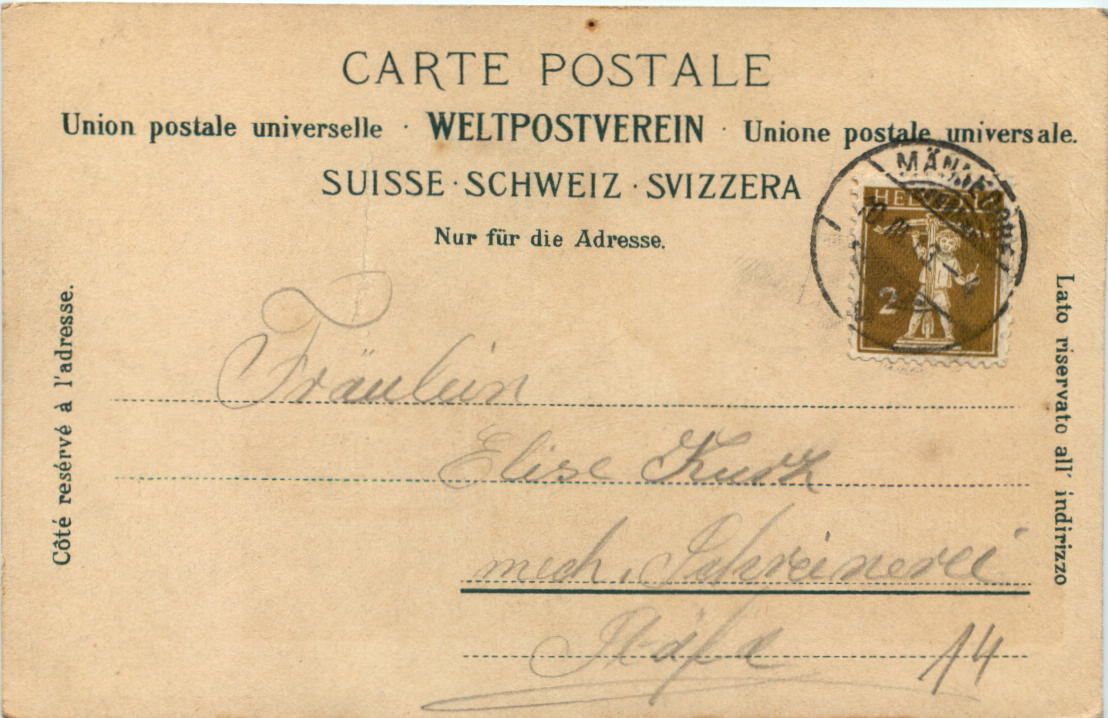 CARTE POSTALE
Union postale universelle · WELTPOSTVEREIN · Unione postale universale.
SUISSE · SCHWEIZ · SVIZZERA
Nur für die Adresse.
MÄNNEDORF
HELVETIA
2
Côté resérvé à l'adresse.
Lato riservato all' indirizzo
Fräulein
Elise Kurz
mech. Schreinerei
Stäfa
14